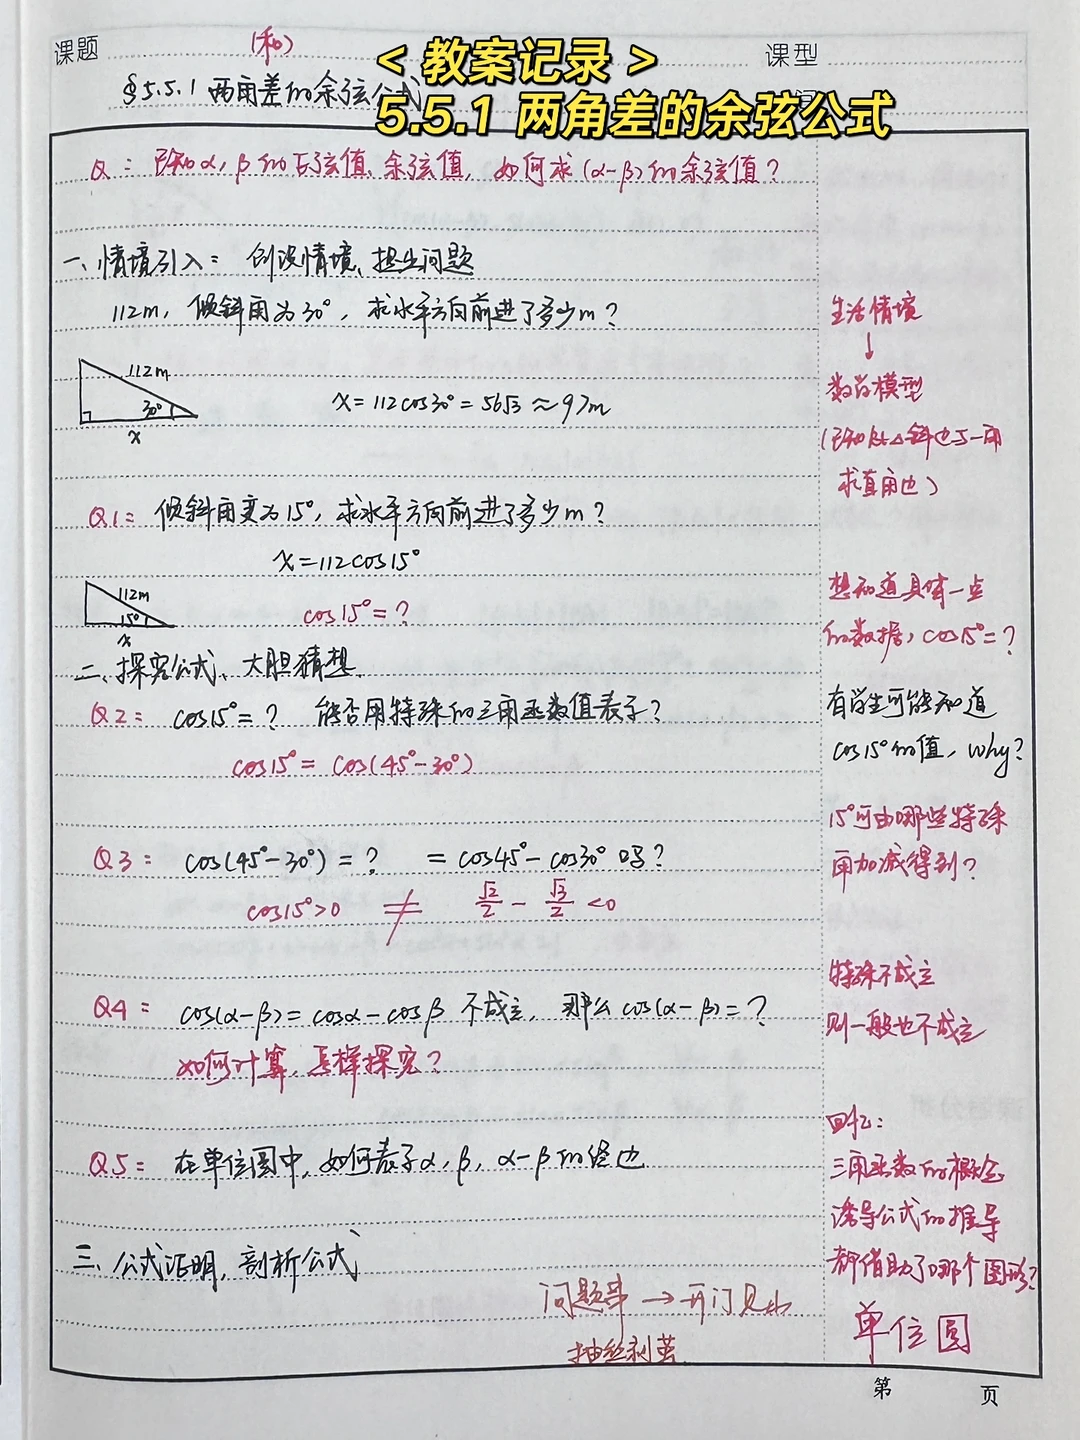 课题
(和)
<教案记录>
课型
§5.5.1 两角差的余弦公式
5.5.1 两角差的余弦公式
Q: 已知α,β的正弦值、余弦值, 如何求(α-β)的余弦值?
一、情境引入: 创设情境、提出问题
112m, 倾斜角为30°, 求水平方向前进了多少m?
112m
30°
x
x=112cos30°=56√3≈97m
Q1: 倾斜角变为15°, 求水平方向前进了多少m?
x=112cos15°
112m
15°
x
cos15°=?
二、探究公式、大胆猜想.
Q2: cos15°=? 能否用特殊的三角函数值表示?
cos15°=cos(45°-30°)
Q3: cos(45°-30°)=? =cos45°-cos30°吗?
cos15°>0 ≠ √2/2 - √3/2 <0
Q4: cos(α-β)=cosα-cosβ 不成立, 那么cos(α-β)=?
如何计算, 怎样探究?
Q5: 在单位圆中, 如何表示α,β,α-β的终边
三、公式证明, 剖析公式
问题串→开门见山
抽丝剥茧
生活情境
↓
数学模型
(已知Rt△斜边与一角
求直角边)
想知道具体一点
的数据, cos15°=?
有学生可能知道
cos15°的值, why?
15°可由哪些特殊
角加减得到?
特殊不成立
则一般也不成立
回忆:
三角函数的概念
诱导公式的推导
都借助了哪个图形?
单位圆
第 页